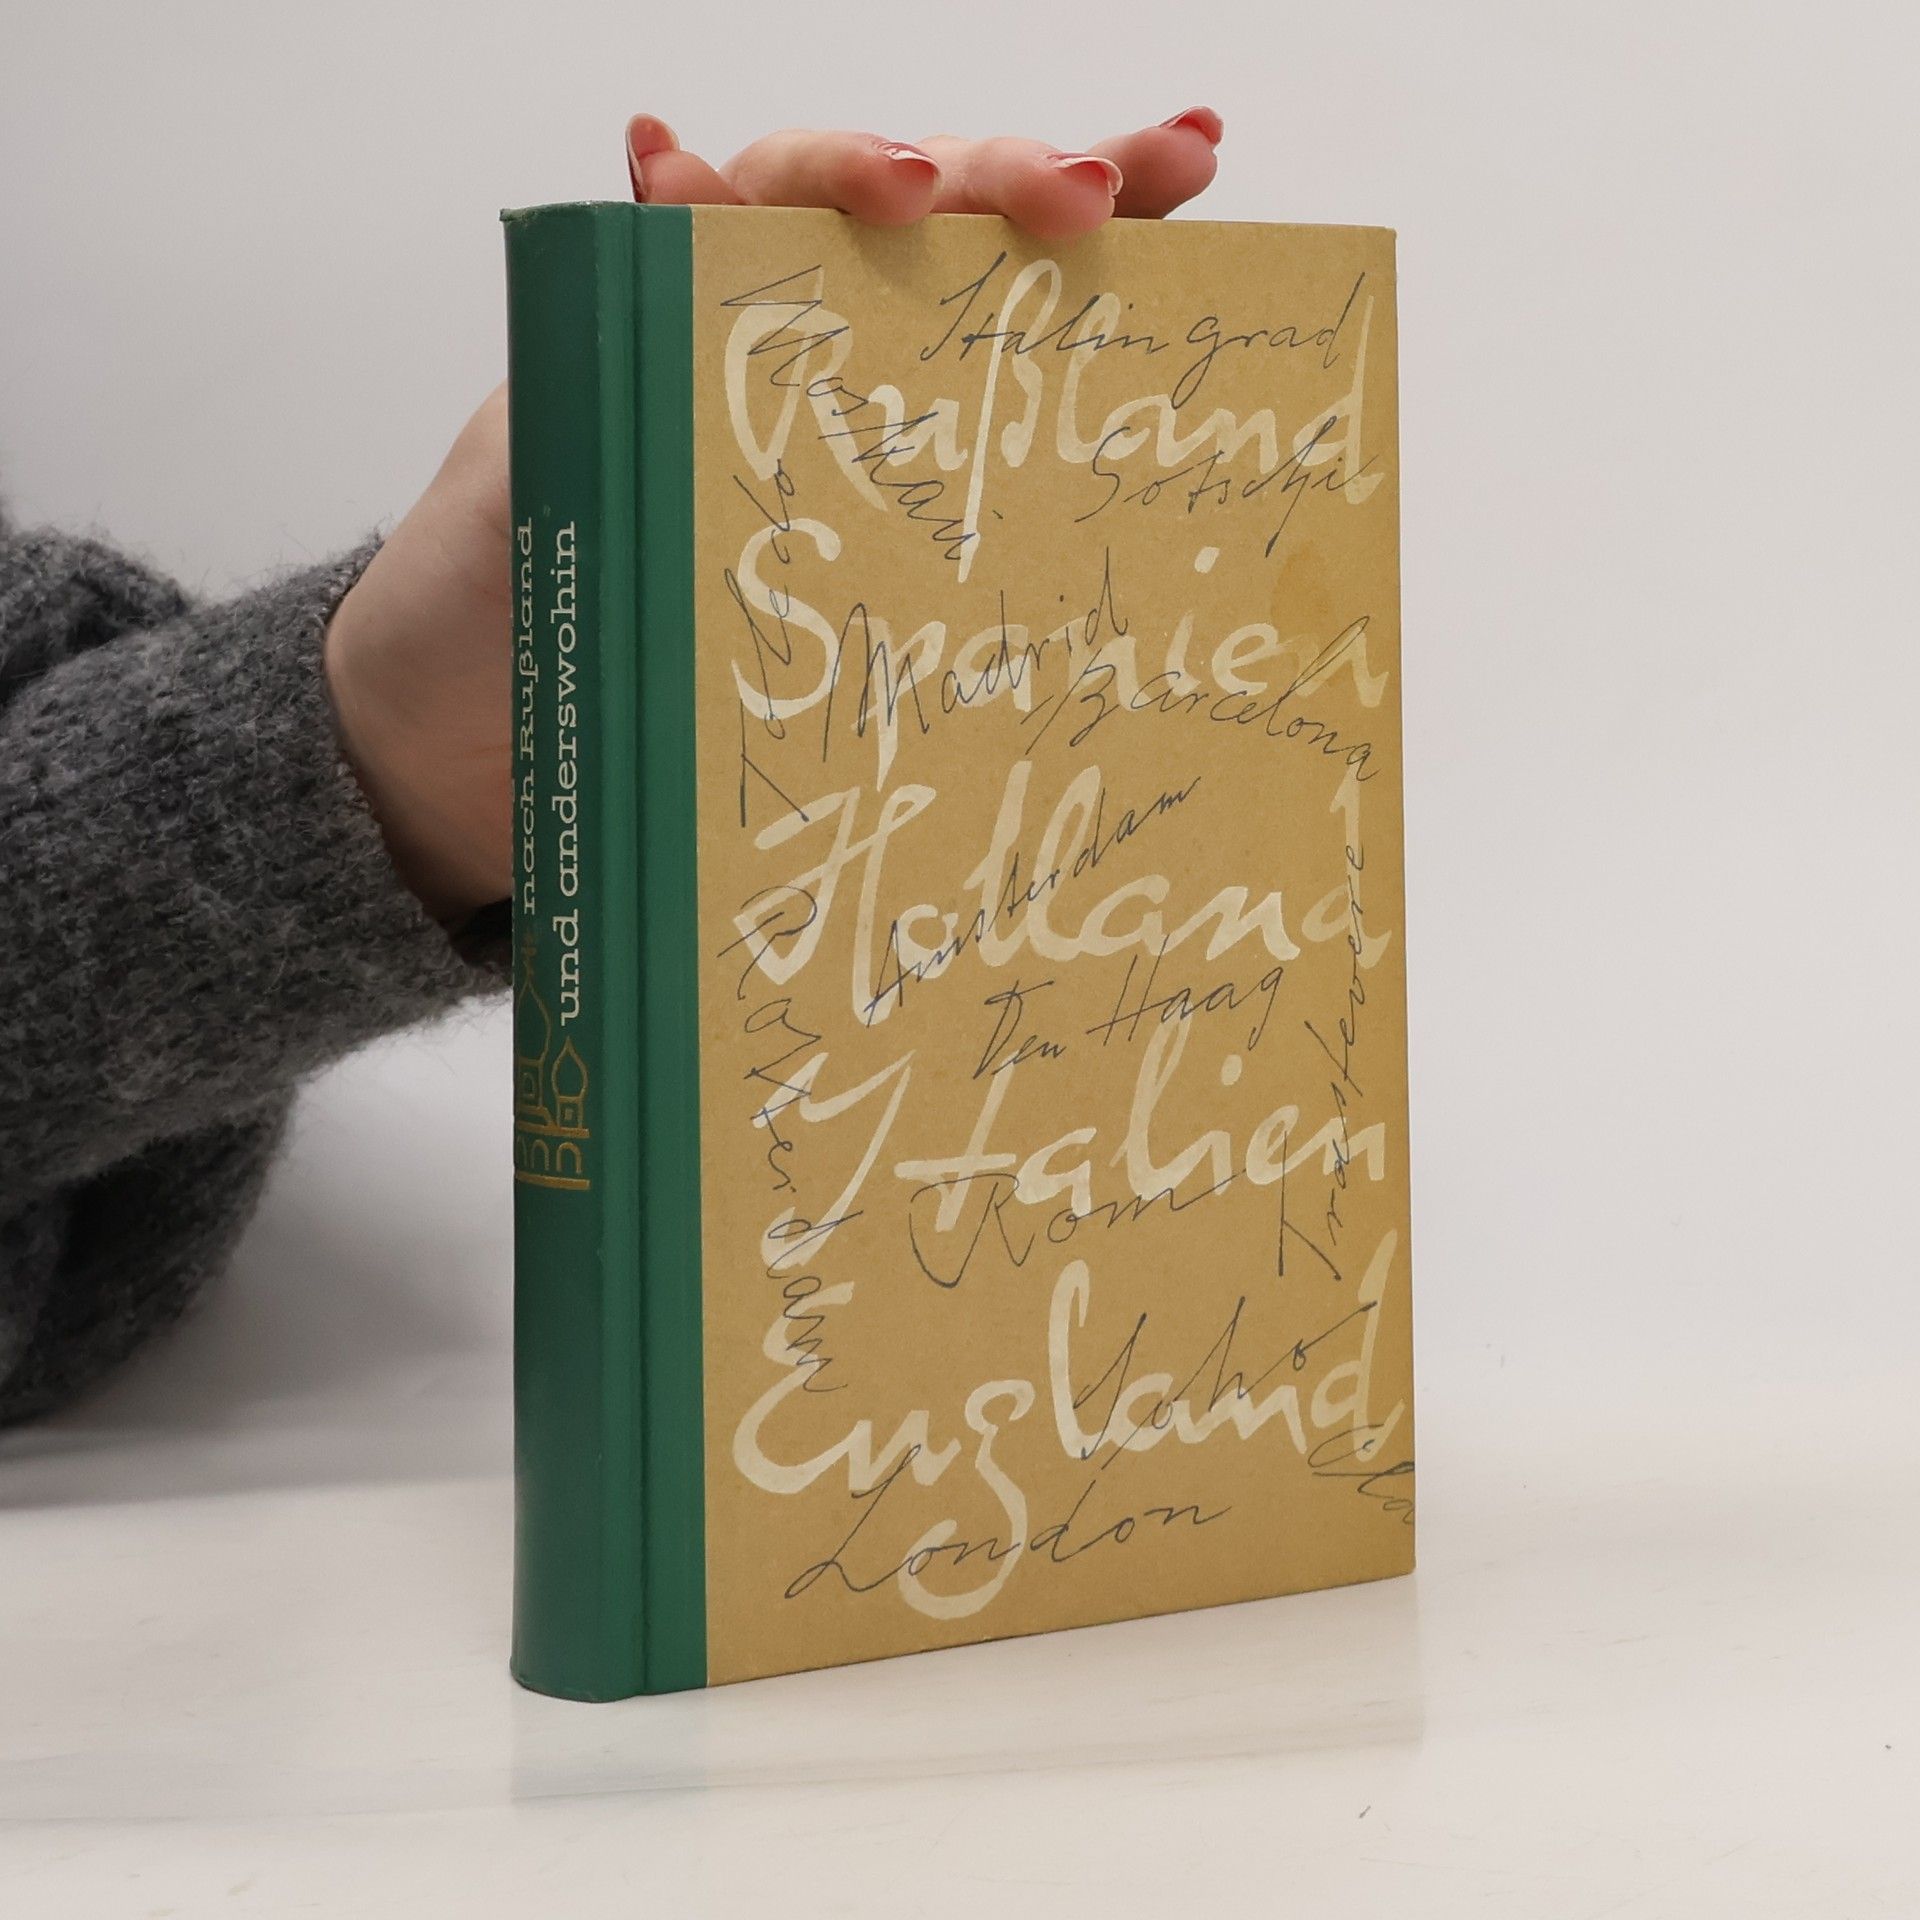 nach Rußland
und anderswohin
Rußland
Stalingrad
Moskau
Sotschi
Toledo
Spanien
Madrid
Barcelona
Holland
Amsterdam
Den Haag
Rotterdam
Italien
Rom
Trastevere
England
Soho
London